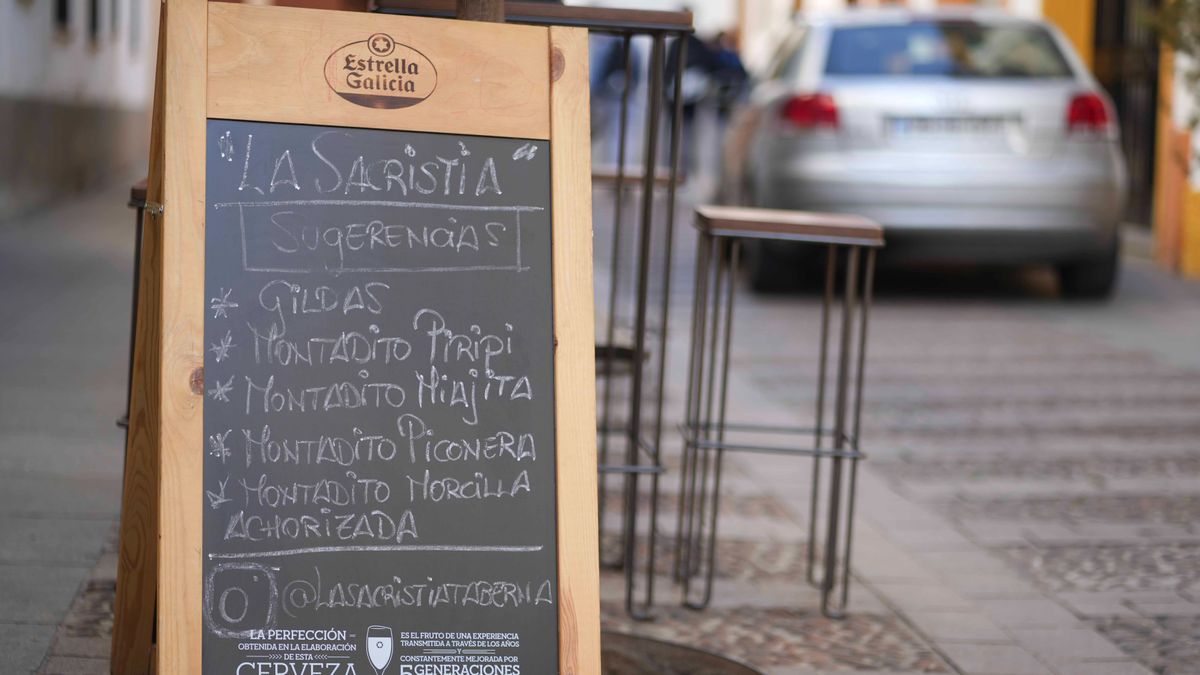 Estrella
Galicia
"LA SACRiSTiA"
SUGERENCiAS
* GiLDAS
* MONTADiTO PiRiPi
* MONTADiTO MiAJiTA
* MONTADiTO PiCONERA
* MONTADiTO MORCiLLA
ACHORiZADA
@LASACRiSTiATABERNA
LA PERFECCIÓN
OBTENIDA EN LA ELABORACIÓN
DE ESTA
CERVEZA
ES EL FRUTO DE UNA EXPERIENCIA
TRANSMITIDA A TRAVÉS DE LOS AÑOS
Y
CONSTANTEMENTE MEJORADA POR
5 GENERACIONES